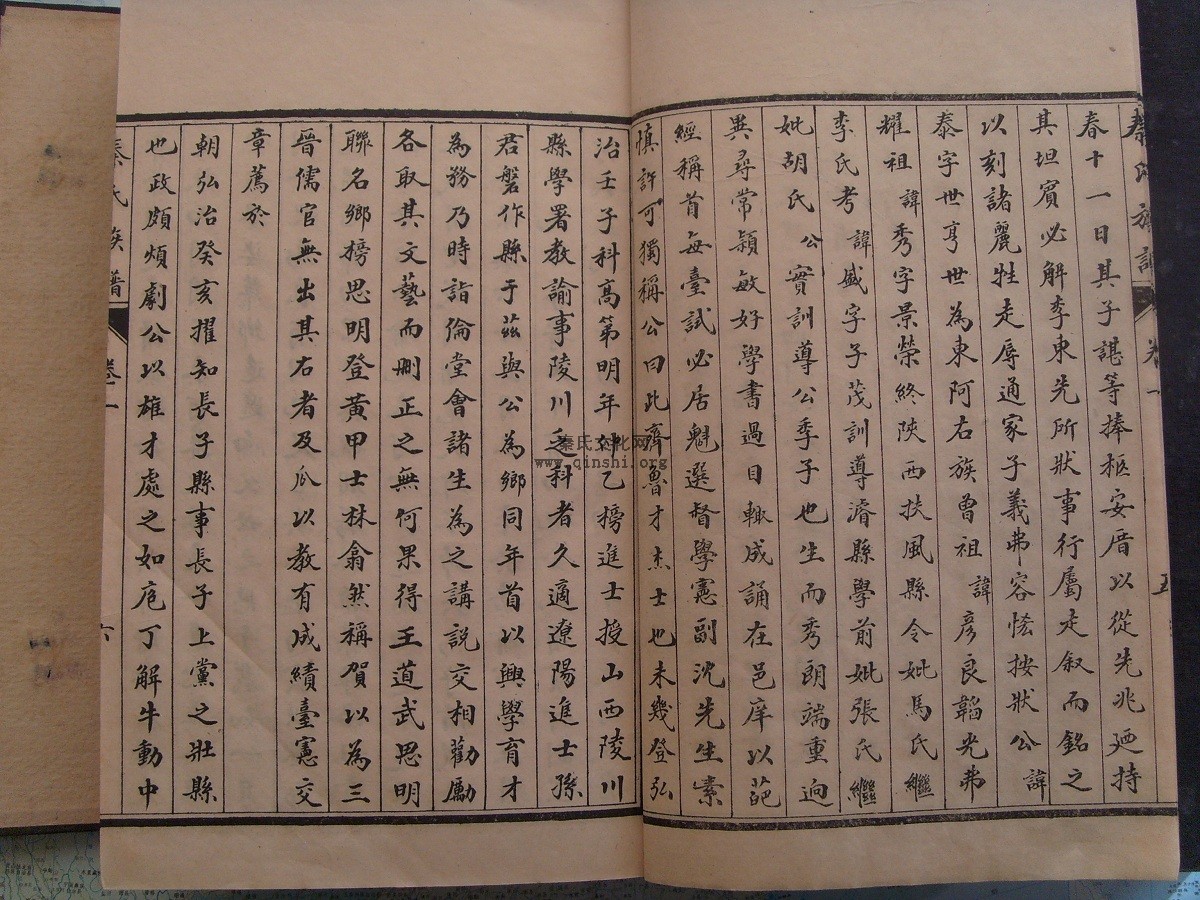 秦氏族譜 卷一 五
春十一日其子諶等捧柩安厝以從先兆廼持
其坦賓必解李東先所狀事行屬走叙而銘之
以刻諸麗牲走辱通家子義弗容恡按狀公諱
泰字世亨世為東阿右族曾祖諱彥良韜光弗
耀祖諱秀字景榮終陝西扶風縣令妣馬氏繼
李氏考諱盛字子茂訓導濬縣學前妣張氏繼
妣胡氏公實訓導公季子也生而秀朗端重迥
異尋常穎敏好學書過目輒成誦在邑庠以葩
經稱首每臺試必居魁選督學憲副沈先生素
慎許可獨稱公曰此齊魯才杰士也未幾登弘
治壬子科高第明年對乙榜進士授山西陵川
縣學署教諭事陵川乏科者久適遼陽進士孫
君磐作縣于茲與公為鄉同年首以興學育才
為務乃時詣倫堂會諸生為之講說交相勸勵
各取其文藝而刪正之無何果得王道武思明
聯名鄉榜思明登黃甲士林翕然稱賀以為三
晉儒官無出其右者及瓜以教有成績臺憲交
章薦於
朝弘治癸亥擢知長子縣事長子上黨之壯縣
也政頗煩劇公以雄才處之如庖丁解牛動中
秦氏族譜 卷一 六
秦氏文化网
www.qinshi.org